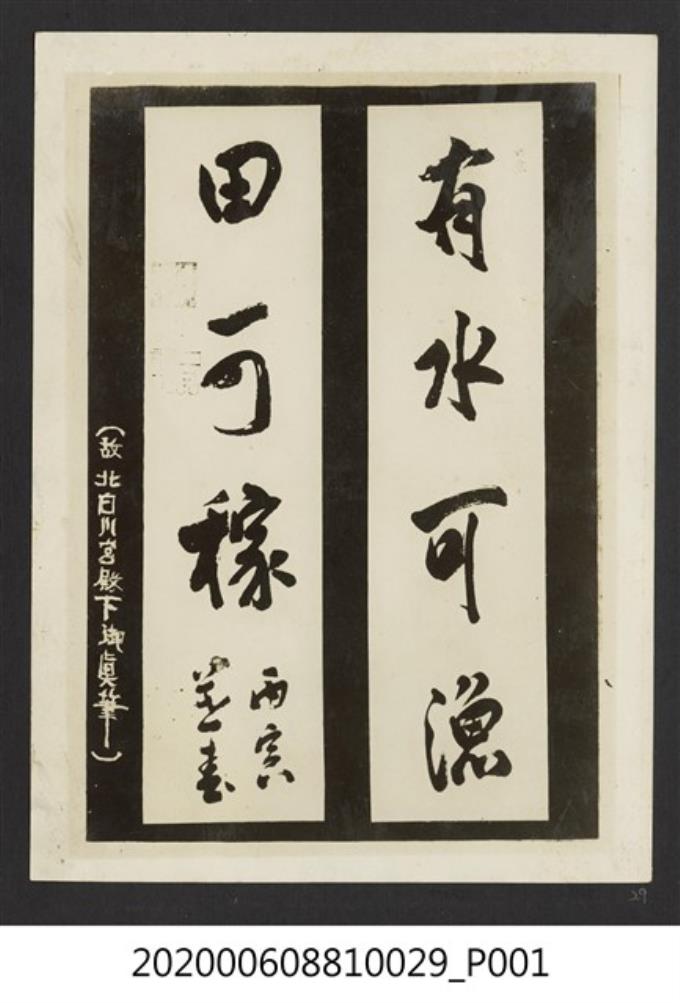 有水可漁
田可稼
丙寅
春
(故北白川宮殿下御眞筆)
29
202000608810029_P001